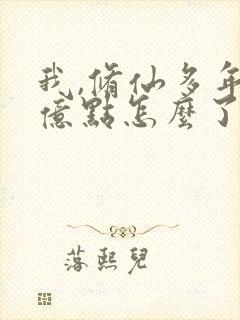 我,脩仙多年
億點怎麼了
落熙兒